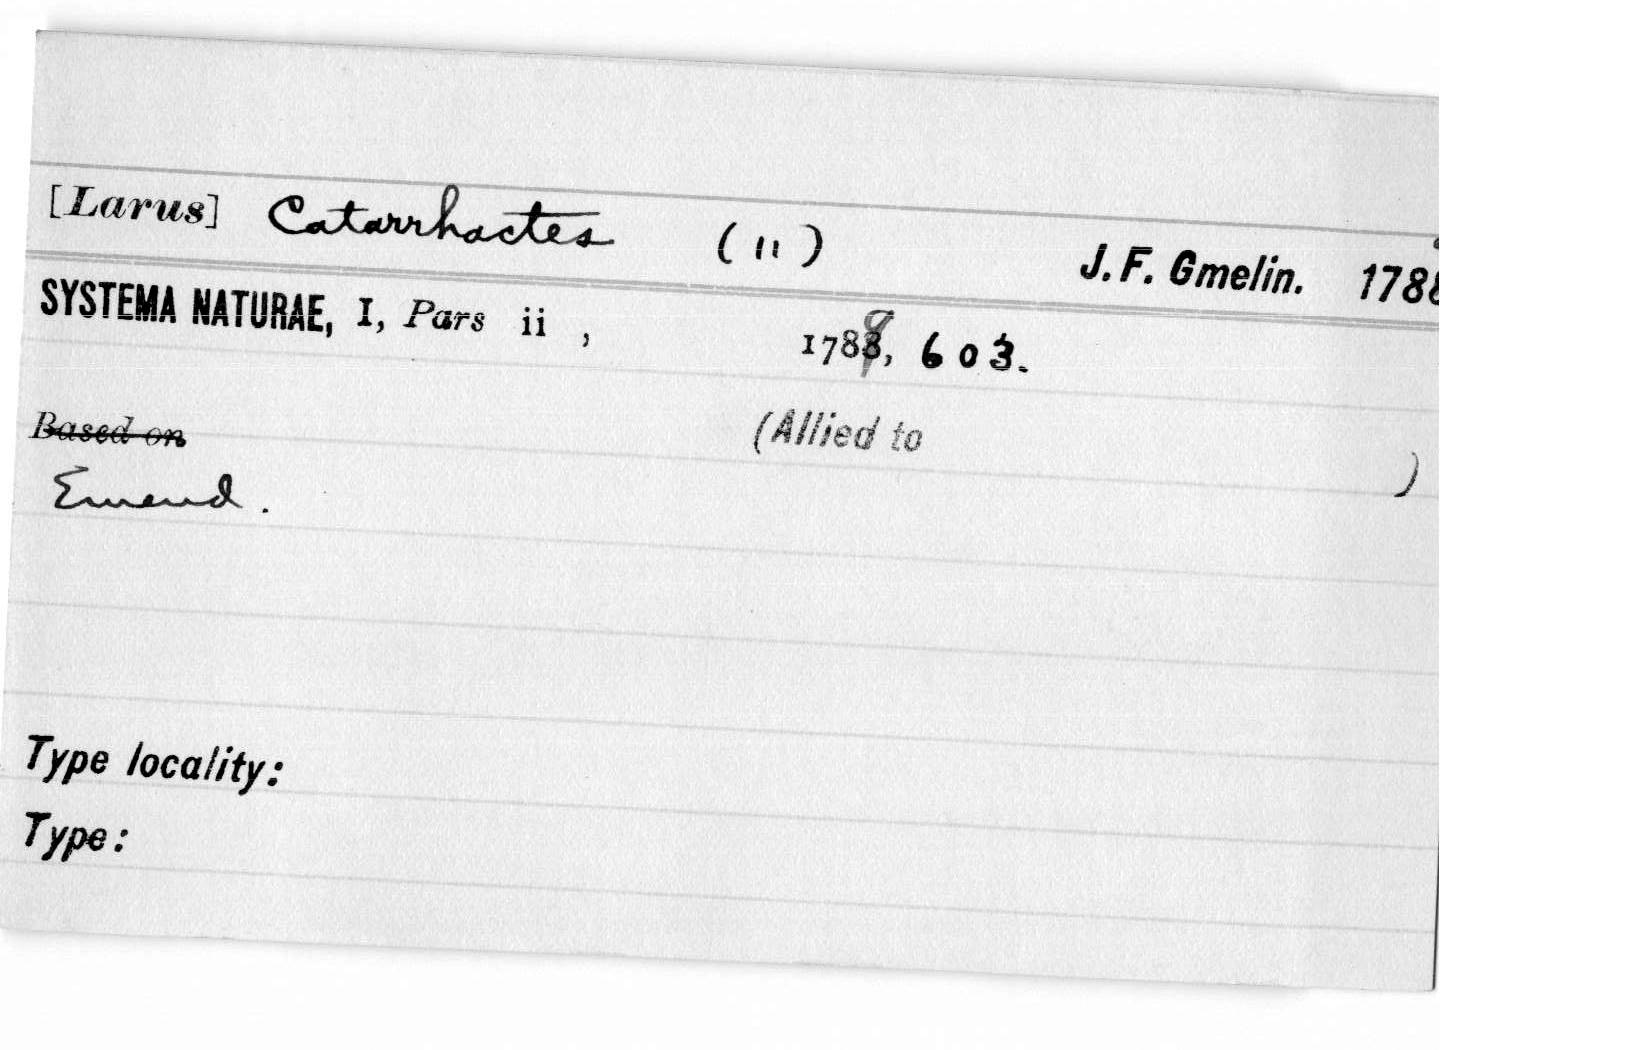 [Larus] Catarrhactes (11) J. F. Gmelin. 1788
SYSTEMA NATURAE, I, Pars ii , 1789, 603.
Based on (Allied to )
Emend.
Type locality:
Type: